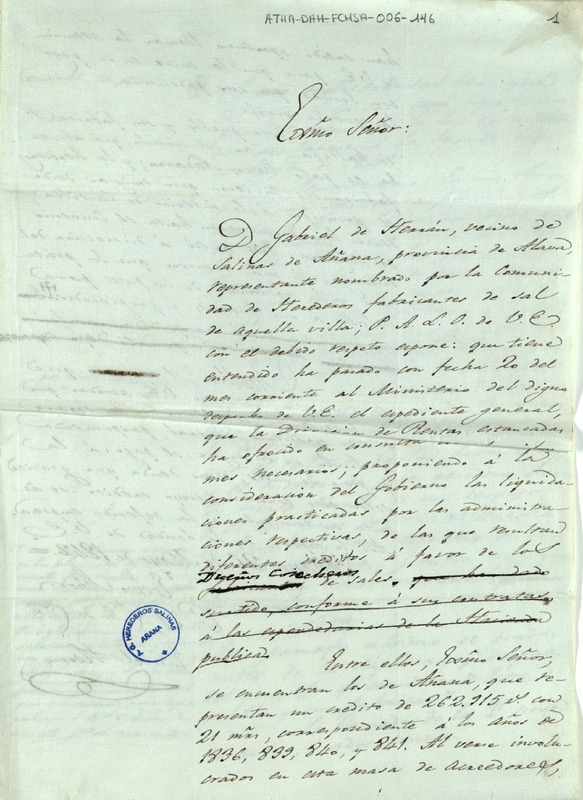 ATHA-DAH-FCHSA-006-146
1
Exmo Señor:
D. Gabriel de Herrán, vecino de
Salinas de Añana, provincia de Alava,
representante nombrado por la Comuni-
dad de Herederos fabricantes de sal
de aquella villa, P. A L. O. de V. E.
con el debido respeto espone: que tiene
entendido ha pasado con fecha 20 del
mes corriente al Ministerio del digno
cargo de V. E. el espediente general,
que la Direccion de Rentas estancadas
ha ofrecido en consulta
mes necesarios; proponiendo á la
consideracion del Gobierno las liquida-
ciones practicadas por las administra
ciones respectivas, de las que resultan
diferentes creditos á favor de los
Dueños Cosecheros
de sales, que han dado
surtido, conforme á sus contratas,
á las espendedurias de la Hacienda
publica.
Entre ellos, Exmo Señor,
se encuentran los de Añana, que re-
presentan un crédito de 262.915 rs con
21 mrs, correspondiente á los años de
1836, 839, 840, y 841. Al verse involu-
crados en esta masa de acreedores,
A. G. HEREDEROS SALINAS
AÑANA